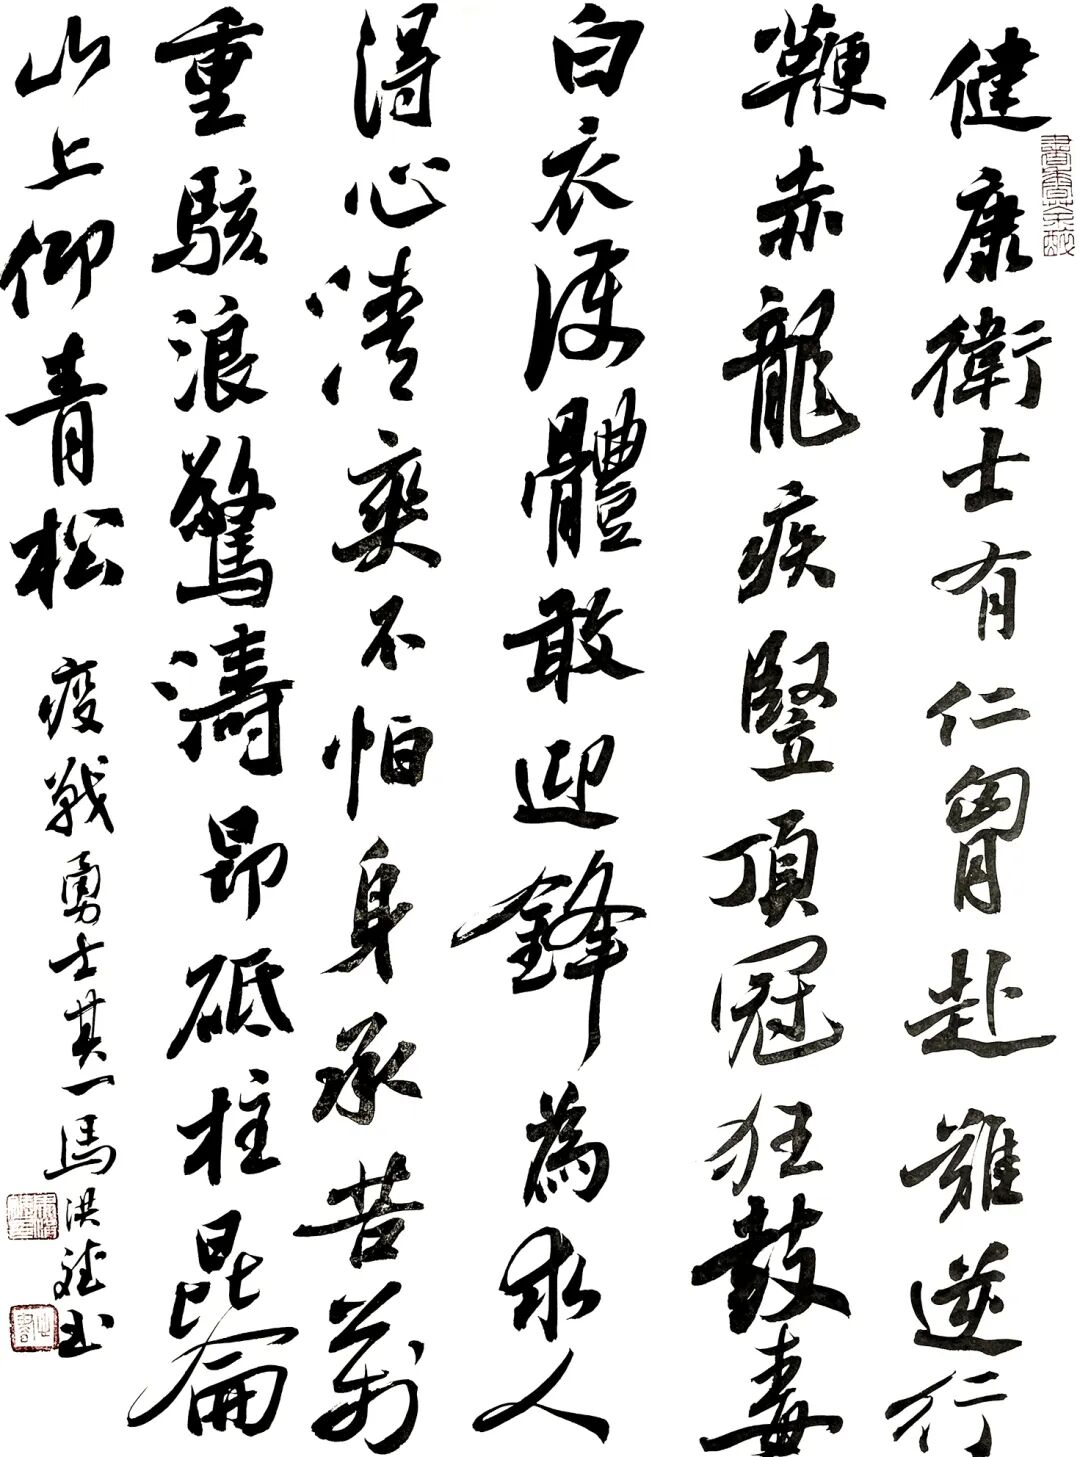 健康衛士有仁胷赴難逆行
鞭赤龍疾豎頂冠狂鼓毒
白衣護體敢迎鋒為求人
得心情爽不怕身承苦萬
重駭浪驚濤昂砥柱昆侖
山上仰青松 疫戰勇士其一馬洪 書